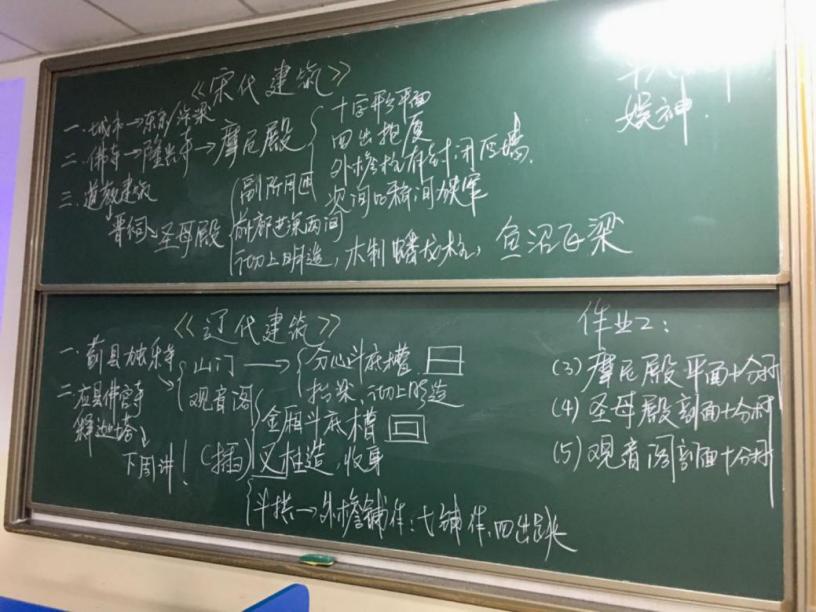 《宋代建筑》
一、城市→东京/汴梁
二、佛寺→隆兴寺→摩尼殿
十字形平面
四出抱厦
外檐柱有封闭厚墙
次间比稍间
三、道教建筑
晋祠→圣母殿
副阶周匝
前部进深两间
彻上明造，木制蟠龙柱，鱼沼飞梁
娱神.
《辽代建筑》
一、蓟县独乐寺
山门→分心斗底槽.
抬梁，彻上明造
观音阁
金厢斗底槽
(插)叉柱造，收身
斗拱→外檐铺作：七铺作，四出跳
二、应县佛宫寺
释迦塔
下周讲！
作业2：
(3)摩尼殿平面+分析
(4)圣母殿剖面+分析
(5)观音阁剖面+分析